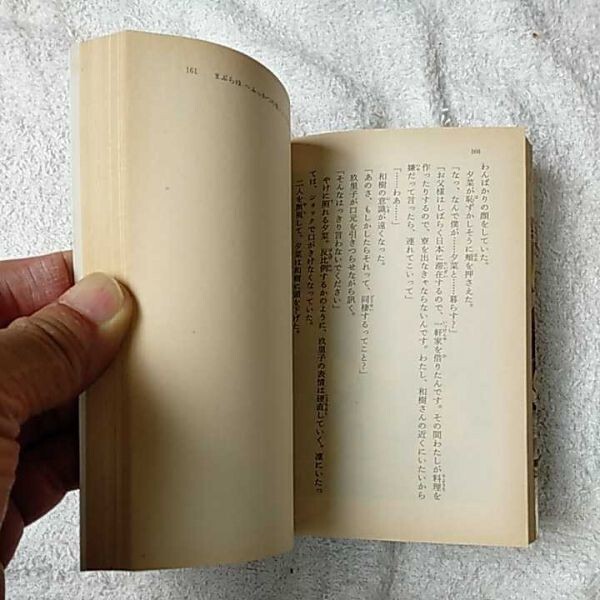 161 まぶらほ 〜ふっかつの
160
わんばかりの顔をしていた。
夕菜が恥ずかしそうに頬を押さえた。
「なっ、なんで僕が……夕菜と……暮らす?」
「お父様はしばらく日本に滞在するので、一軒家を借りたんです。その間わたしが料理を
作ったりするので、寮を出なきゃならないんです。わたし、和樹さんの近くにいたいから
嫌だって言ったら、連れてこいって」
「……わあ……」
和樹の意識が遠くなった。
「あのさ、もしかしたらそれって、同棲するってこと?」
玖里子が口元を引きつらせながら訊く。
「そんなはっきり言わないでください」
やけに照れる夕菜。反比例するかのように、玖里子の表情は硬直していく。凜にいたっ
ては、ショックで口がきけなくなっていた。
二人を無視して、夕菜は和樹に頭を下げた。